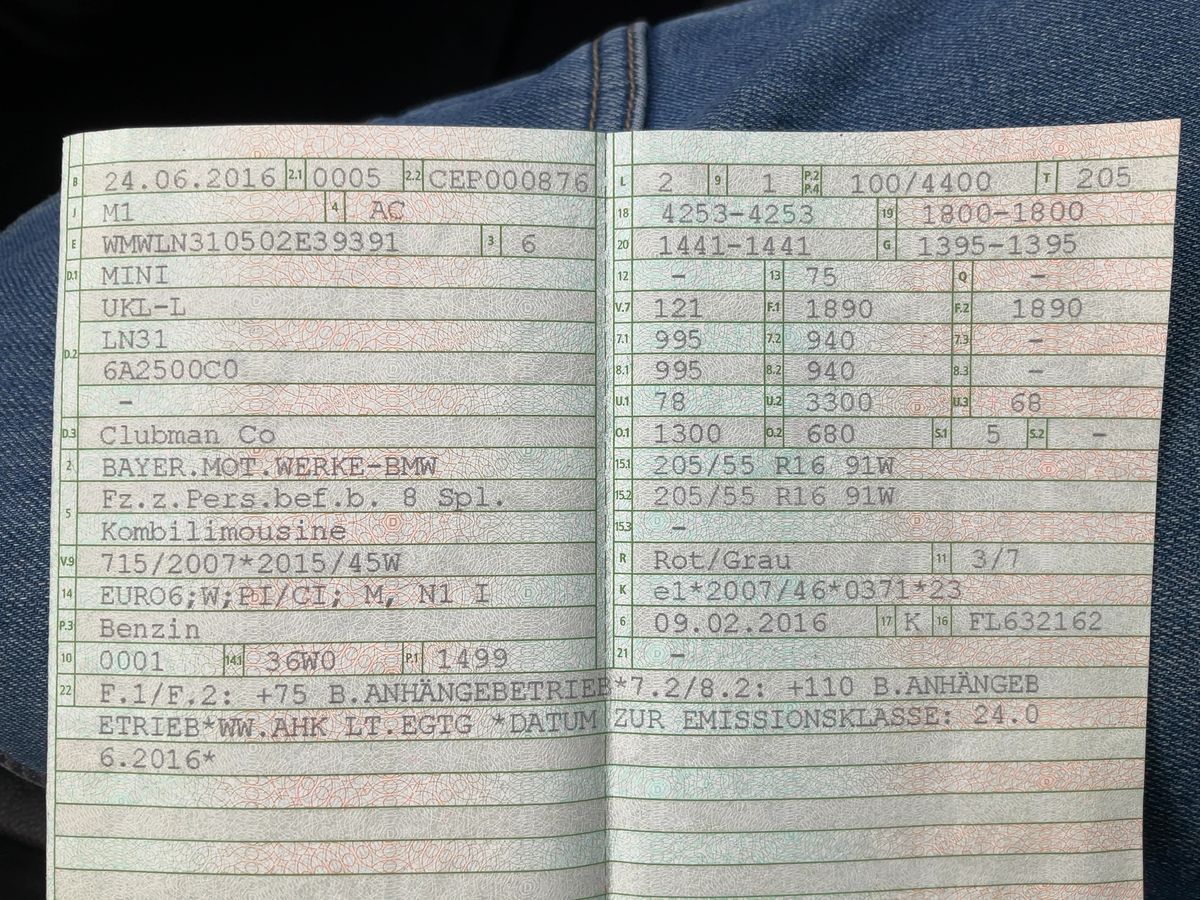 B 24.06.2016 2.1 0005 2.2 CEP000876
J M1 4 AC
E WMWLN310502E39391 3 6
D.1 MINI
D.2 UKL-L
LN31
6A2500C0
-
D.3 Clubman Co
2 BAYER.MOT.WERKE-BMW
5 Fz.z.Pers.bef.b. 8 Spl.
Kombilimousine
V.9 715/2007*2015/45W
14 EURO6;W;PI/CI; M, N1 I
P.3 Benzin
10 0001 14.1 36W0 P.1 1499
L 2 9 1 P.2 P.4 100/4400 T 205
18 4253-4253 19 1800-1800
20 1441-1441 G 1395-1395
12 - 13 75 Q -
V.7 121 F.1 1890 F.2 1890
7.1 995 7.2 940 7.3 -
8.1 995 8.2 940 8.3 -
U.1 78 U.2 3300 U.3 68
O.1 1300 O.2 680 S.1 5 S.2 -
15.1 205/55 R16 91W
15.2 205/55 R16 91W
15.3 -
R Rot/Grau 11 3/7
K e1*2007/46*0371*23
6 09.02.2016 17 K 16 FL632162
21 -
22 F.1/F.2: +75 B.ANHÄNGEBETRIEB*7.2/8.2: +110 B.ANHÄNGEB
ETRIEB*WW.AHK LT.EGTG *DATUM ZUR EMISSIONSKLASSE: 24.0
6.2016*